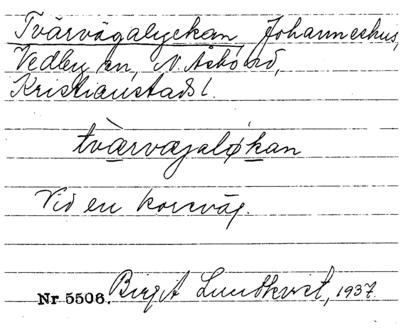 Tvärvägalyckan, Johanneshus,
Vedby sn, N. Åsbo hd,
Kristianstads l.
tvàrvægaløkan
Vid en korsväg.
Nr 5506. Birgit Lundkvist, 1937